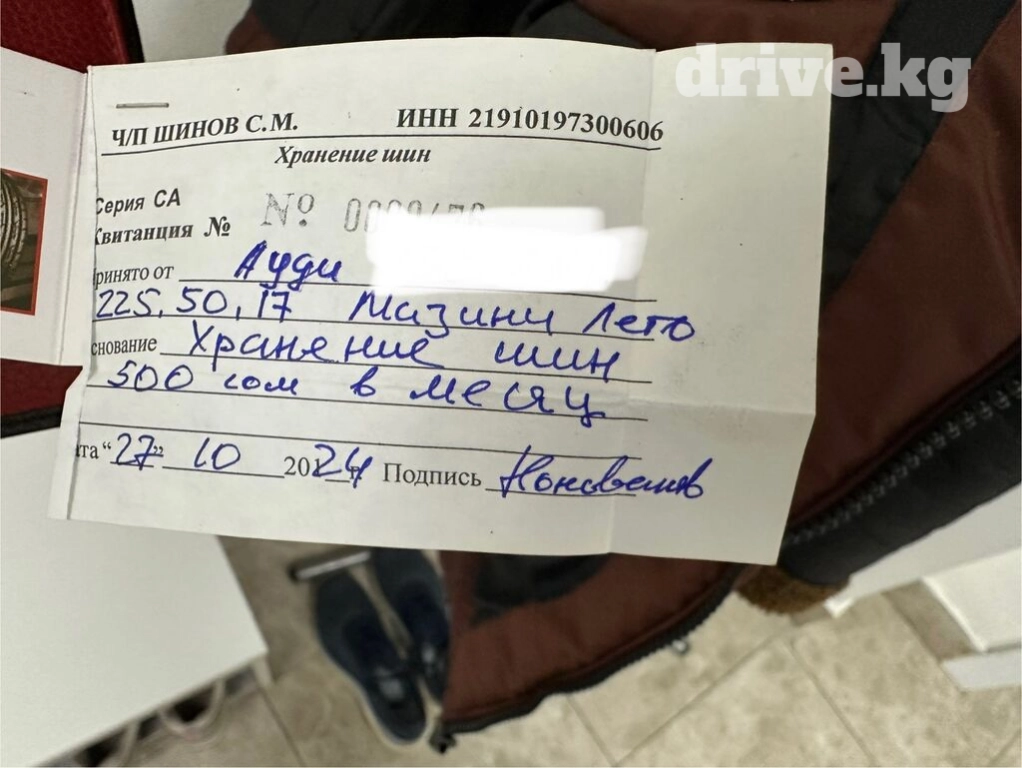 drive.kg
Ч/П ШИНОВ С.М. ИНН 21910197300606
Хранение шин
Серия СА
Квитанция № № 
ринято от Ауди
225, 50, 17 Мазини Лето
снование Хранение шин
500 сом в месяц
та "27" 10 2024 Подпись